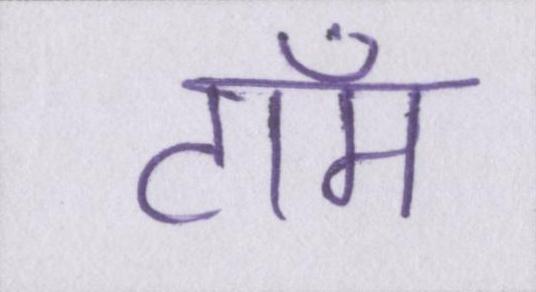 टाँम